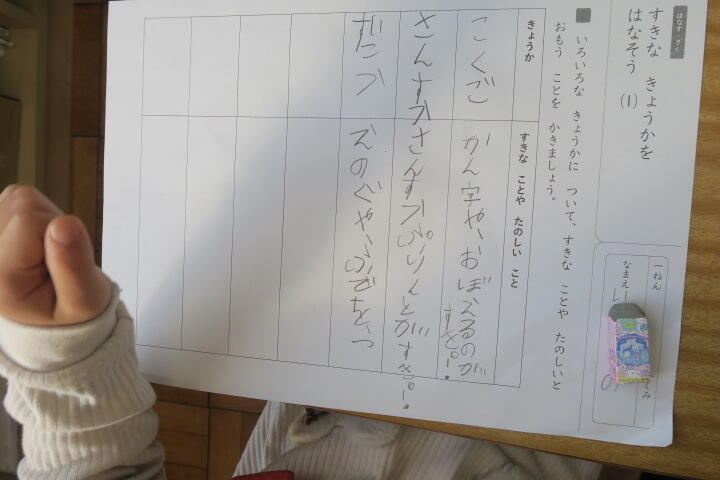 はなす・きく
すきな きょうかを
はなそう (1)
一ねん
くみ
なまえ
いろいろな きょうかに ついて、すきな ことや たのしいと
おもう ことを かきましょう。
きょうか
すきな ことや たのしい こと
こくご
かん字や、おぼえるのが
すき!
さんすう
さんすうぷりんとがすき!
ずこう
えのぐや、